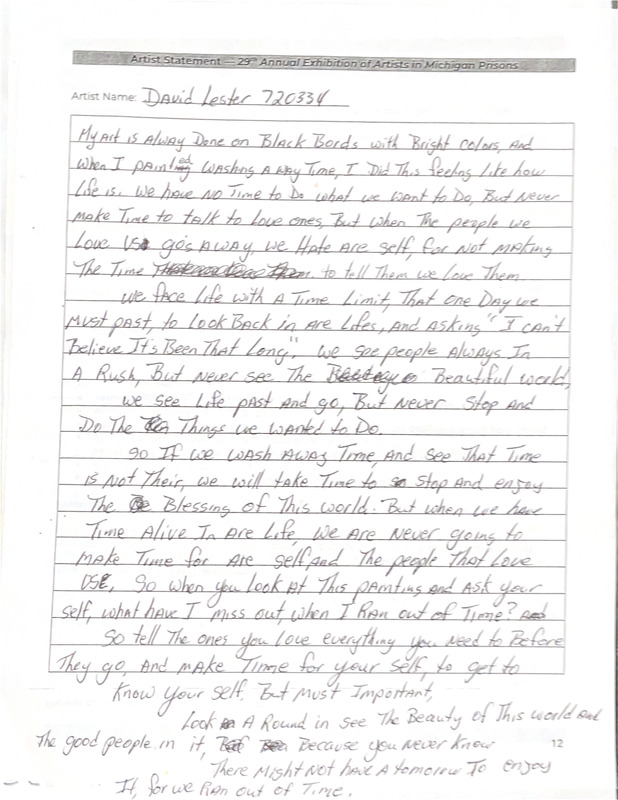 Artist Statement — 29th Annual Exhibition of Artists in Michigan Prisons
Artist Name: David Lester 720334
My Art is Alway Done on Black Bords with Bright colors, And
when I painted washing A way Time, I Did This feeling like how
life is. we have no Time to Do what we want to Do, But Never
make Time to talk to love ones, But when The people we
Love Us goes Away, we Hate Are self, for not making
The Time to tell Them we love Them
we face life with A Time Limit, That one Day we
must past, to look Back in Are lifes, And Asking "I can't
Believe It's Been That long". we see people Always In
A Rush, But never see The Beautiful world,
we see life past And go, But never stop And
Do The Things we wanted to Do.
so If we wash Away Time, And see That Time
is Not Their, we will take Time to stop And enjoy
The Blessing of This world. But when we have
Time Alive In Are Life, we Are never going to
make Time for Are self, and The people That Love
US. So when you look At This painting And Ask your
self, what have I miss out, when I Ran out of Time?
So tell The ones you love everything you need to Before
They go, And make Time for your self, to get to
know your self. But Must Important,
Look A Round in see The Beauty of This world And
The good people in it, Because you never know
12
There Might Not have A tomorrow To enjoy
It, for we Ran out of Time.